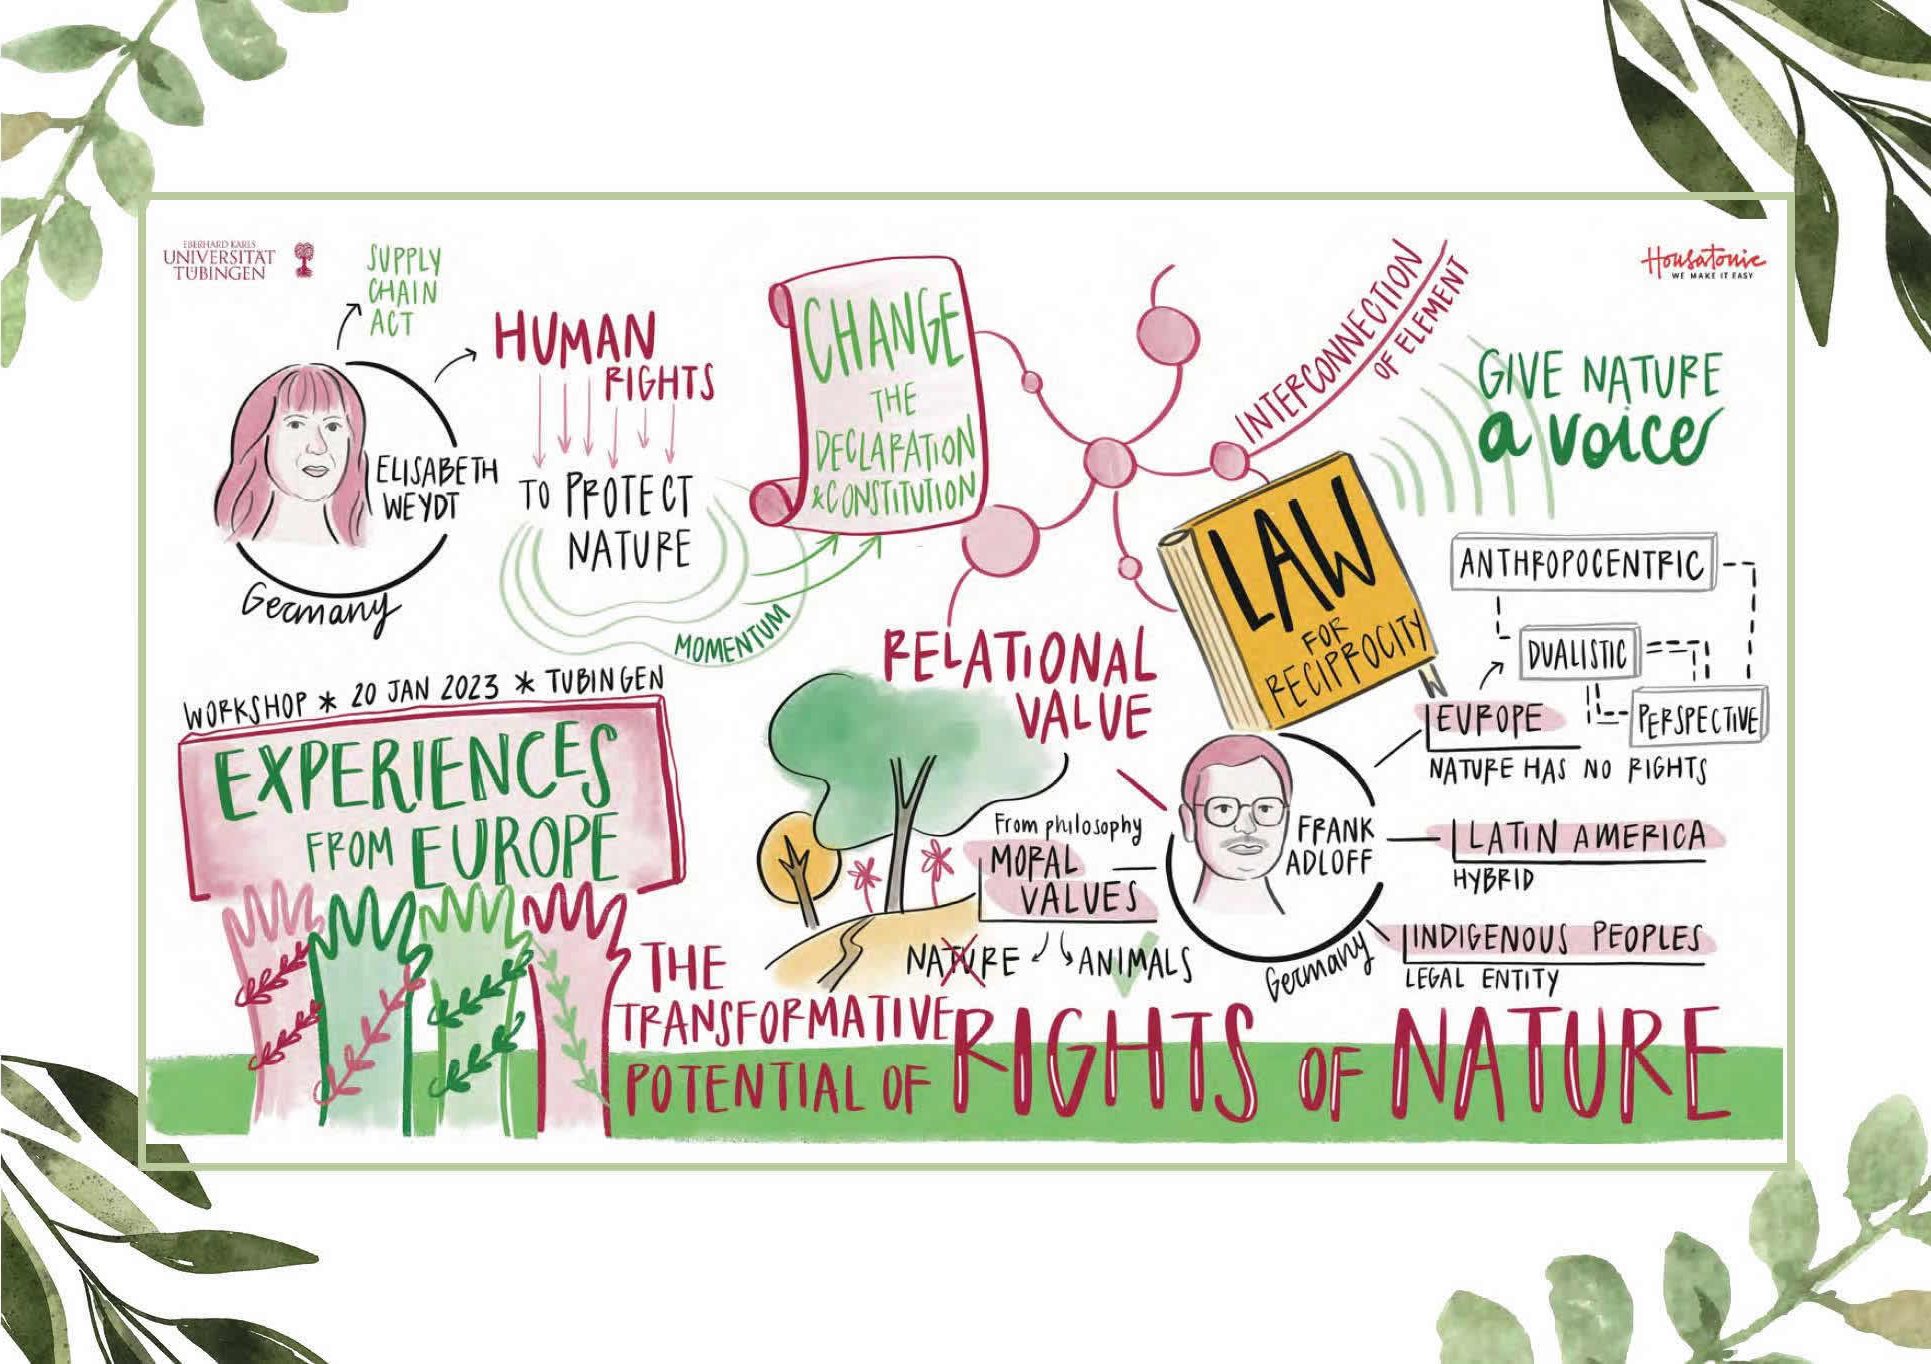 EBERHARD KARLS
UNIVERSITÄT
TÜBINGEN
SUPPLY
CHAIN
ACT
HUMAN
RIGHTS
TO PROTECT
NATURE
ELISABETH
WEYDT
Germany
MOMENTUM
CHANGE
THE
DECLARATION
& CONSTITUTION
INTERCONNECTION
OF ELEMENT
Housatonic
WE MAKE IT EASY
GIVE NATURE
a voice
LAW
FOR
RECIPROCITY
ANTHROPOCENTRIC
DUALISTIC
PERSPECTIVE
EUROPE
NATURE HAS NO RIGHTS
RELATIONAL
VALUE
From philosophy
MORAL
VALUES
NATURE
ANIMALS
FRANK
ADLOFF
Germany
LATIN AMERICA
HYBRID
INDIGENOUS PEOPLES
LEGAL ENTITY
WORKSHOP * 20 JAN 2023 * TUBINGEN
EXPERIENCES
FROM EUROPE
THE
TRANSFORMATIVE
POTENTIAL OF RIGHTS OF NATURE